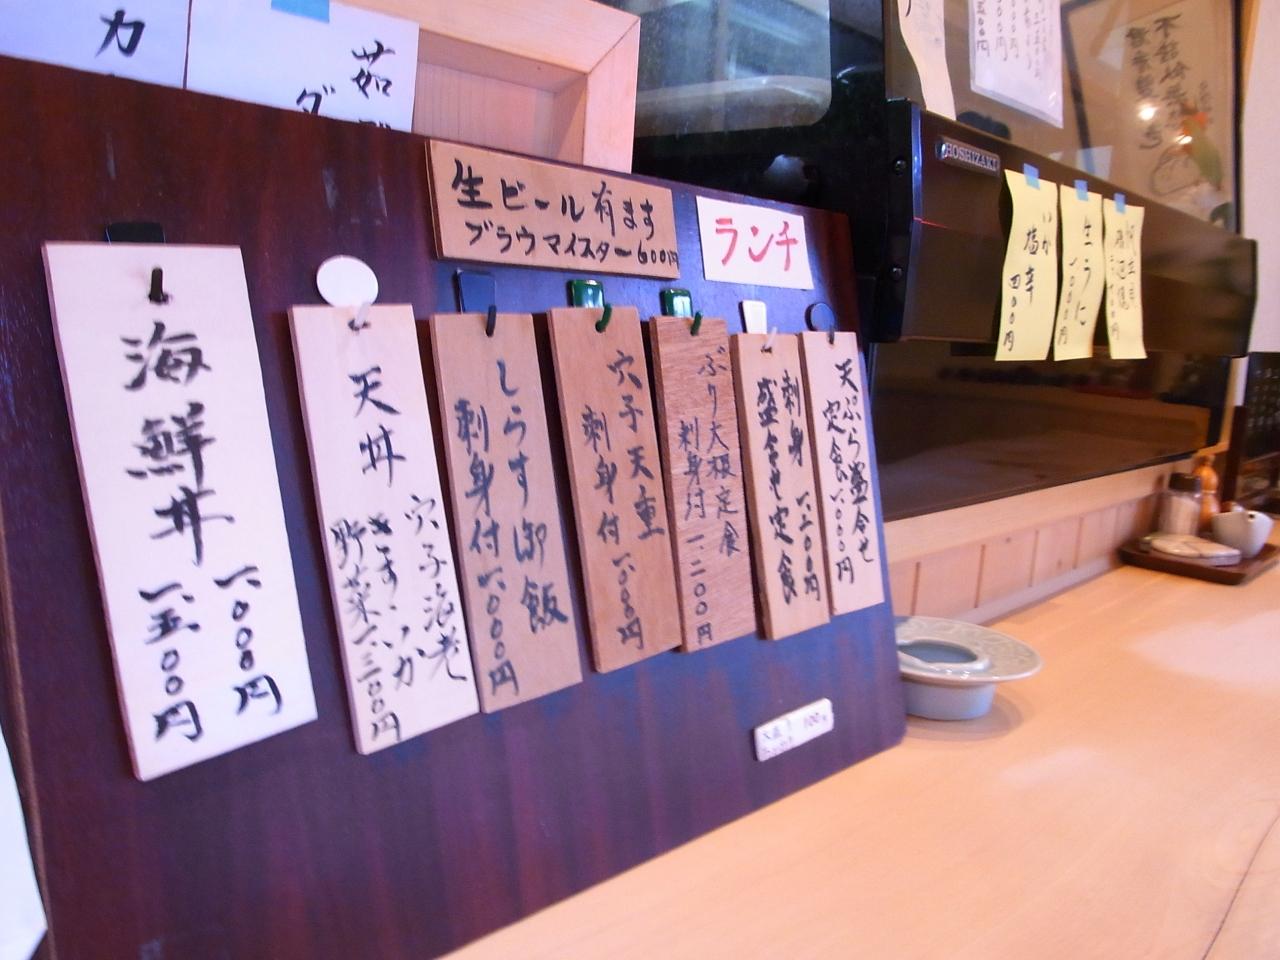 カ
茹
ダ
生ビール有ます
ブラウマイスター600円
ランチ
海鮮丼
一、〇〇〇円
一、五〇〇円
天丼
穴子海老
きす、いか
野菜一、三〇〇円
しらす御飯
刺身付一、〇〇〇円
穴子天重
刺身付一、〇〇〇円
ぶり大根定食
刺身付一二〇〇円
刺身
盛合せ定食
一、二〇〇円
天ぷら盛合せ
定食一、〇〇〇円
大盛
100円
HOSHIZAKI
いか
塩辛
四〇〇円
生うに
一、〇〇〇円